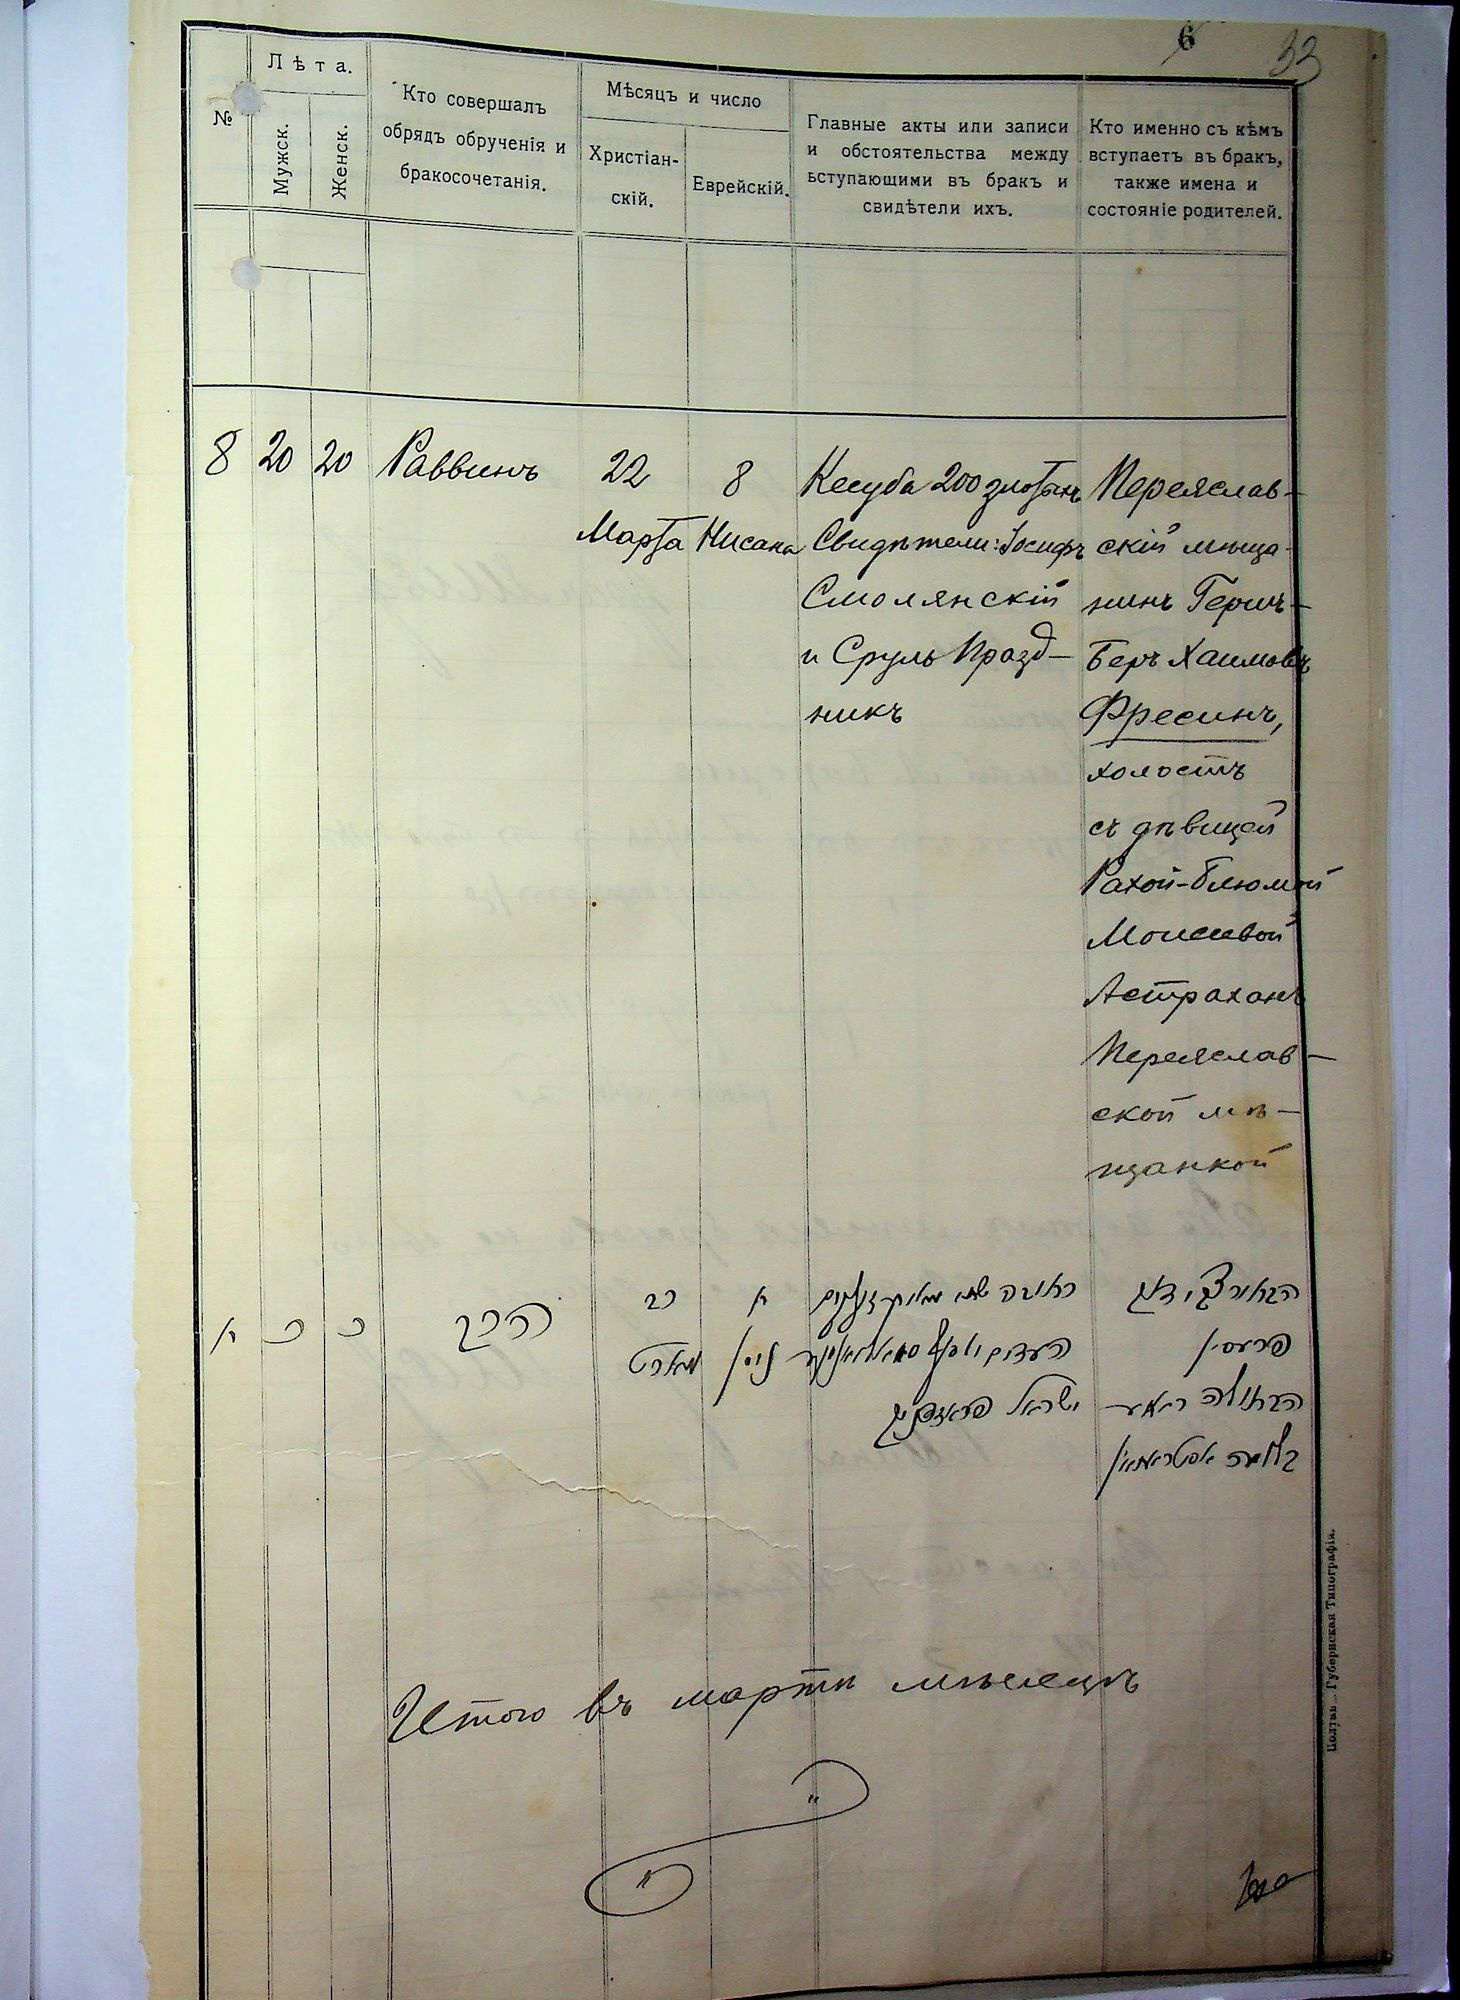 6
33
№
Лѣта.
Мужск.
Женск.
Кто совершалъ
обрядъ обрученія и
бракосочетанія.
Мѣсяцъ и число
Христіан-
скій.
Еврейскій.
Главные акты или записи
и обстоятельства между
вступающими въ бракъ и
свидѣтели ихъ.
Кто именно съ кѣмъ
вступаетъ въ бракъ,
также имена и
состояніе родителей.
8
20
20
Раввинъ
22
Марта
8
Нисана
Кесуба 200 злотыхъ
Свидѣтели: Іосифъ
Смолянскій
и Сруль Празд-
никъ
Переяслав-
скій мѣща-
нинъ Гершъ-
Беръ Хаимовъ
Фресинъ,
холостъ
съ дѣвицей
Рахой-Блюмой
Моисеевой
Астрахань
Переяслав-
ской мѣ-
щанкой
ח
כ
כ
הרב
כב
מארט
ח
ניסן
ישראל
פרעסין
הבתולה
בלומה אסטראחאן
Итого въ мартѣ мѣсяцѣ
Губернская Типографія.